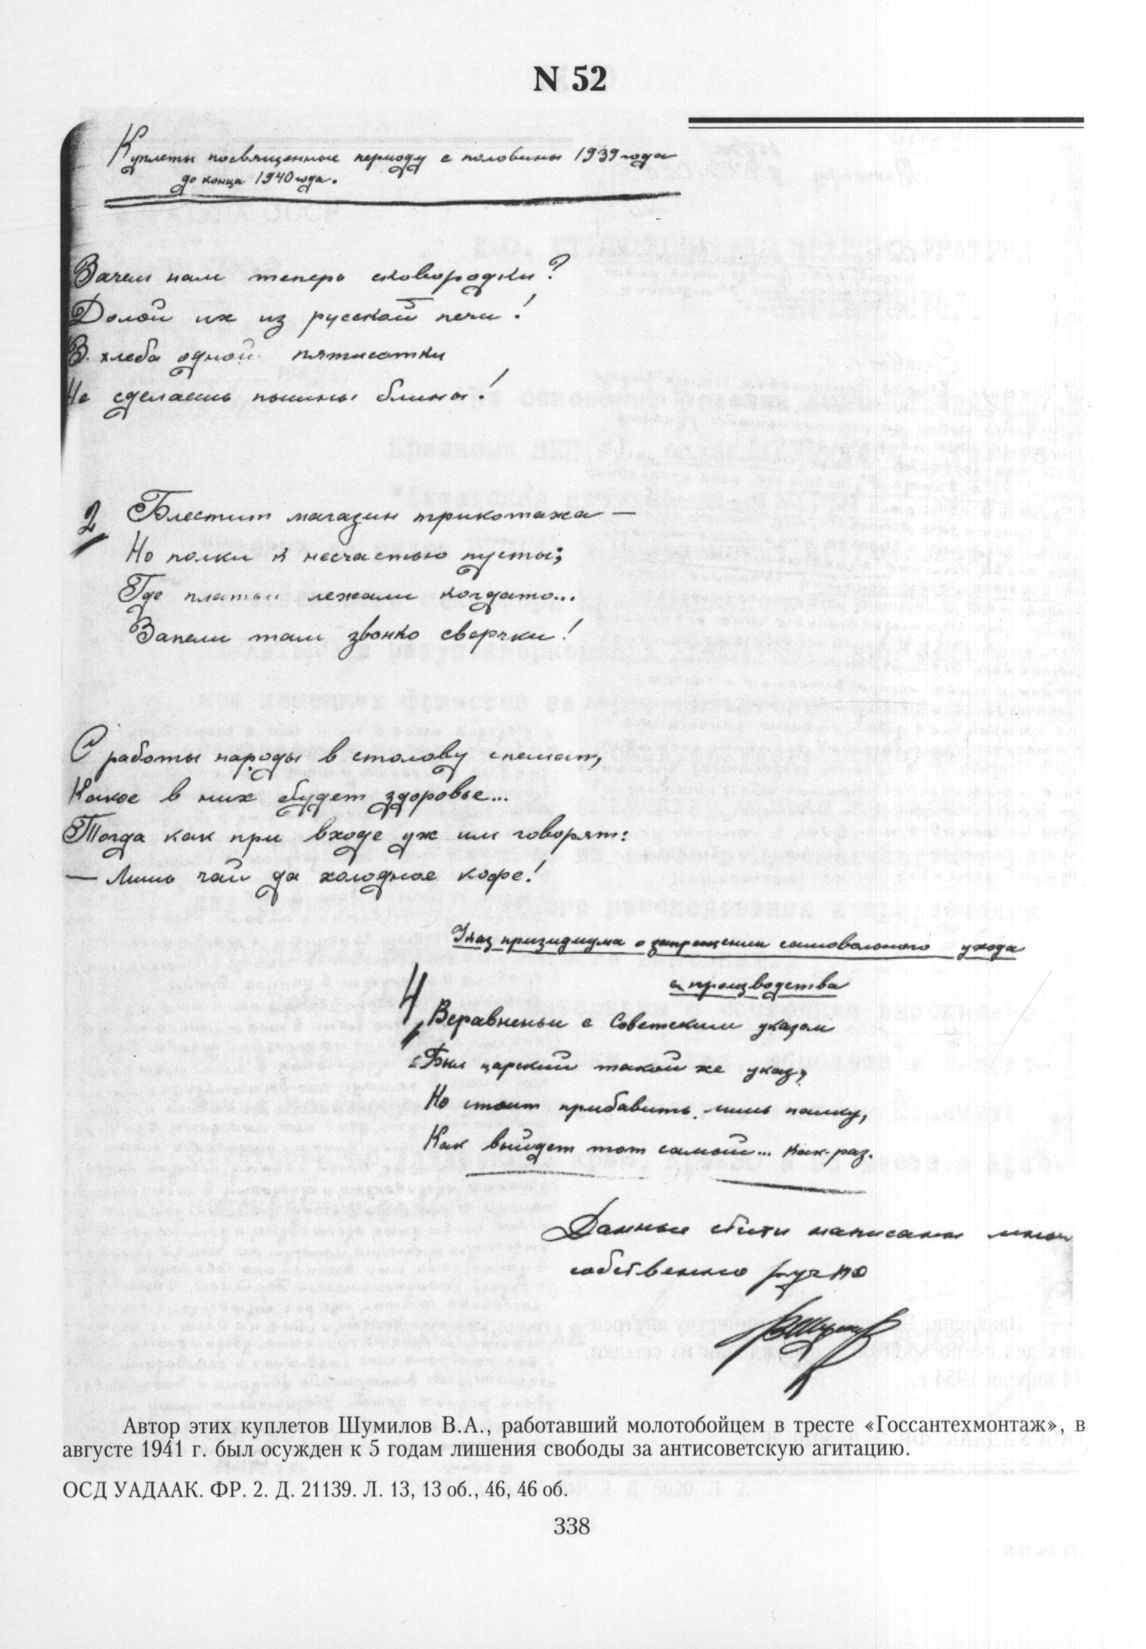 N 52
Куплеты посвященные периоду с половины 1939 года
до конца 1940 года.
Зачем нам теперь сковородки?
Долой их из русской печи!
В. хлеба одной пятисотки
Не сделаешь пышны блины!
2 Блестит магазин трикотажа —
Но полки к несчастью пусты;
Где платьи лежали когдато...
Запели там звонко сверчки!
С работы народы в столову спешат,
Какое в них будет здоровье...
Тогда как при входе уж им говорят:
— Лишь чай да холодное кофе!
Указ призидиума о запрещении самовольного ухода
с производства
4, Всравненьи с Советским указом
Был царский такой же указ,
Но стоит прибавить лишь палку,
Как выйдет тот самый... как-раз.
Данные стихи написаны мною
собственно ручно
Автор этих куплетов Шумилов В.А., работавший молотобойцем в тресте «Госсантехмонтаж», в
августе 1941 г. был осужден к 5 годам лишения свободы за антисоветскую агитацию.
ОСД УАДААК. ФР. 2. Д. 21139. Л. 13, 13 об., 46, 46 об.
338